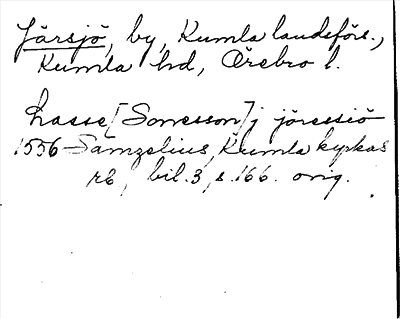 Järsjö, by, Kumla landsförs.,
Kumla hd, Örebro l.
Lasse [Sonesson] j jöressiö
1556 Samzelius, Kumla kyrkas
rb, bil. 3, s. 166. orig.